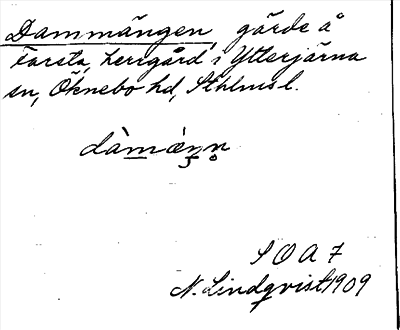 Dammängen, gärde å
Farsta, herrgård i Ytterjärna
sn, Öknebo hd, Sthlms l.
dàmæ̀n̥n̥
S O A 7
N. Lindqvist 1909